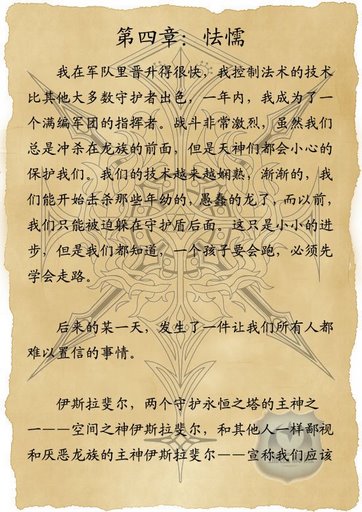 第四章：怯懦
我在军队里晋升得很快，我控制法术的技术
比其他大多数守护者出色，一年内，我成为了一
个满编军团的指挥者。战斗非常激烈，虽然我们
总是冲杀在龙族的前面，但是天神们都会小心的
保护我们。我们的技术越来越娴熟，渐渐的，我
们能开始击杀那些年幼的，愚蠢的龙了，而以前，
我们只能被迫躲在守护盾后面。这只是小小的进
步，但是我们都知道，一个孩子要会跑，必须先
学会走路。
后来的某一天，发生了一件让我们所有人都
难以置信的事情。
伊斯拉斐尔，两个守护永恒之塔的主神之
一——空间之神伊斯拉斐尔，和其他人一样鄙视
和厌恶龙族的主神伊斯拉斐尔——宣称我们应该